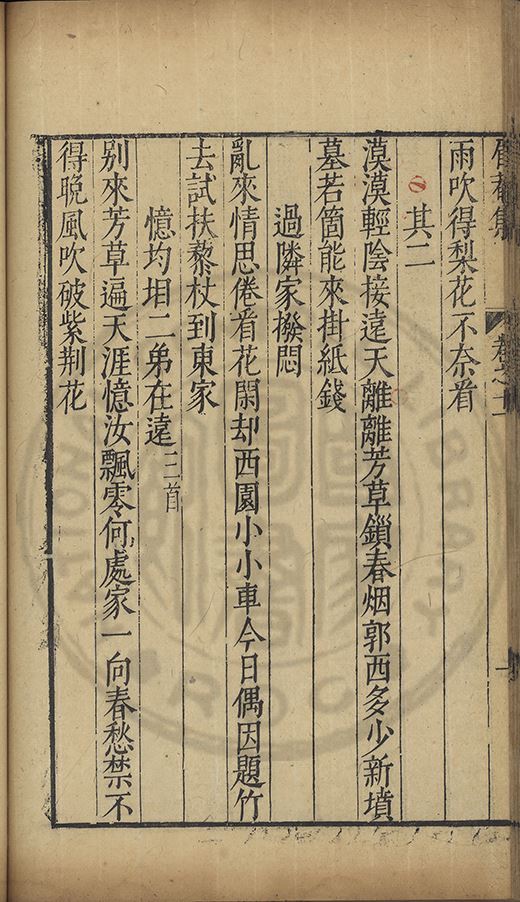 雨吹得梨花不奈看
其二
漠漠輕陰接遠天離離芳草鎖春烟郭西多少新墳
墓若箇能來掛紙錢
過隣家撥悶
亂來情思倦看花閑却西園小小車今日偶因題竹
去試扶藜杖到東家
憶均垍二弟在遠三首
别來芳草遍天涯憶汝飄零何處家一向春愁禁不
得晚風吹破紫荆花